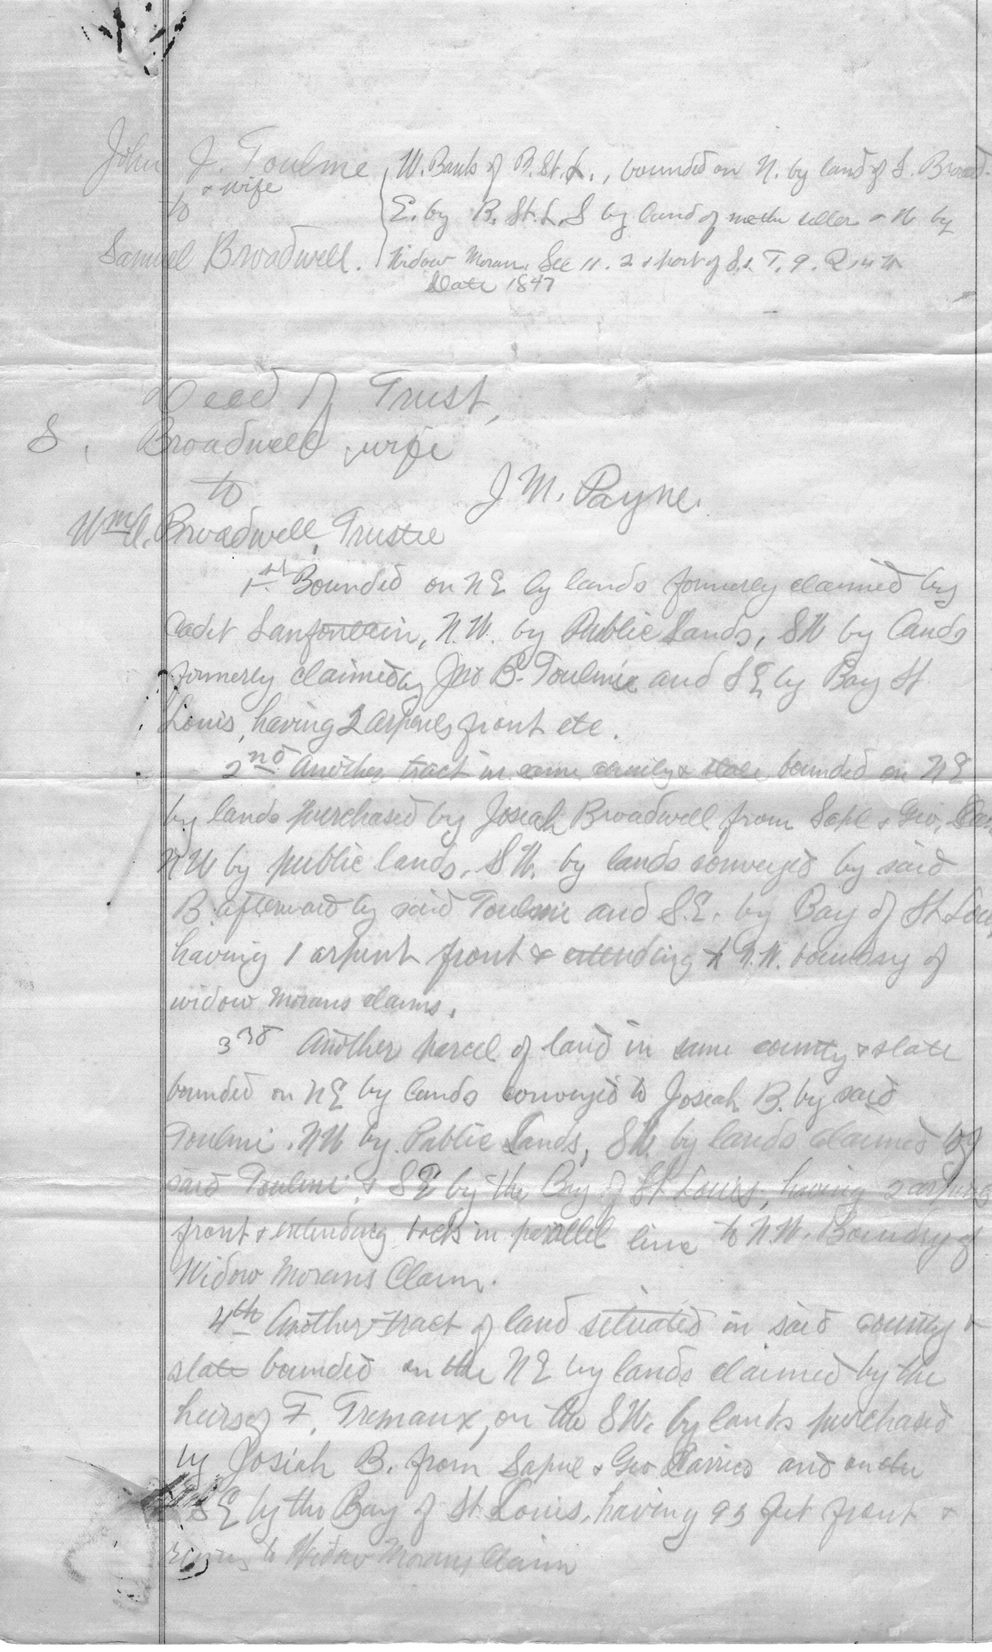 John J. Toulme
& wife
to
Samuel Broadwell.
W. Bank of B. St. L., bounded on N. by land of S. Broad-
E. by B. St. L. S by land of seller & W. by
Widow Moran, Sec 11. 2 & part of S. T. 9. R 14 W
Date 1847
Deed of Trust,
S. Broadwell, wife
to
J. M. Payne.
Wm A. Broadwell, Trustee
1st Bounded on NE by lands formerly claimed by
Cadet Lanfontain, N.W. by Public Lands, SW by lands
formerly claimed by Jno B. Toulmie and S E by Bay St
Louis, having 2 arpents front etc.
2nd Another tract in same county & state bounded on NE
by lands purchased by Josiah Broadwell from Sapl & Geo,
NW by public lands, SW. by lands conveyed by said
B. afterward by said Toulmie and S.E. by Bay of St Lou
having 1 arpent front & extending to N.W. boundry of
widow Morans claims.
3rd Another parcel of land in same county & state
bounded on NE by lands conveyed to Josiah B. by said
Toulmi. NW by Public Lands, SW. by lands claimed by
said Toulmi, & SE by the Bay of St Louis, having 2 arpents
front & extending back in parallel line to N.W. Boundry of
Widow Morans Claim.
4th Another tract of land situated in said county &
state bounded on the NE by lands claimed by the
heirs of F. Tremaux, on the SW. by lands purchased
by Josiah B. from Sapne & Geo Carrico and on the
S E by the Bay of St Louis, having 93 feet front &
to Widow Morans Claim